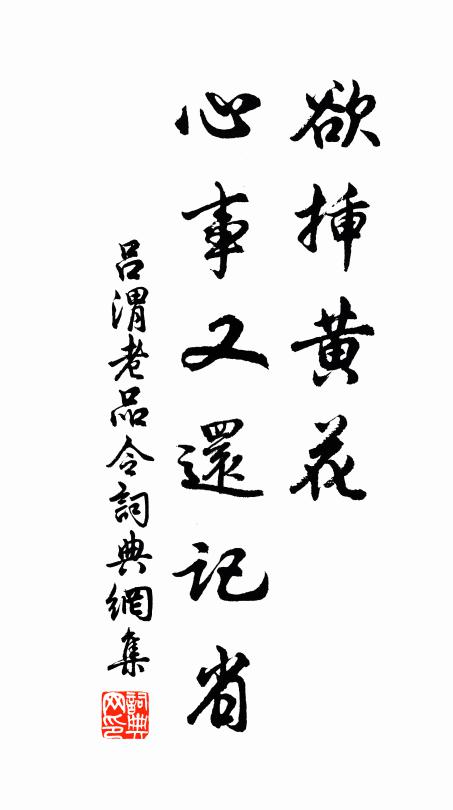 欲挿黄花
心事又還記省
吕渭老品令詞典網集
詞典網印